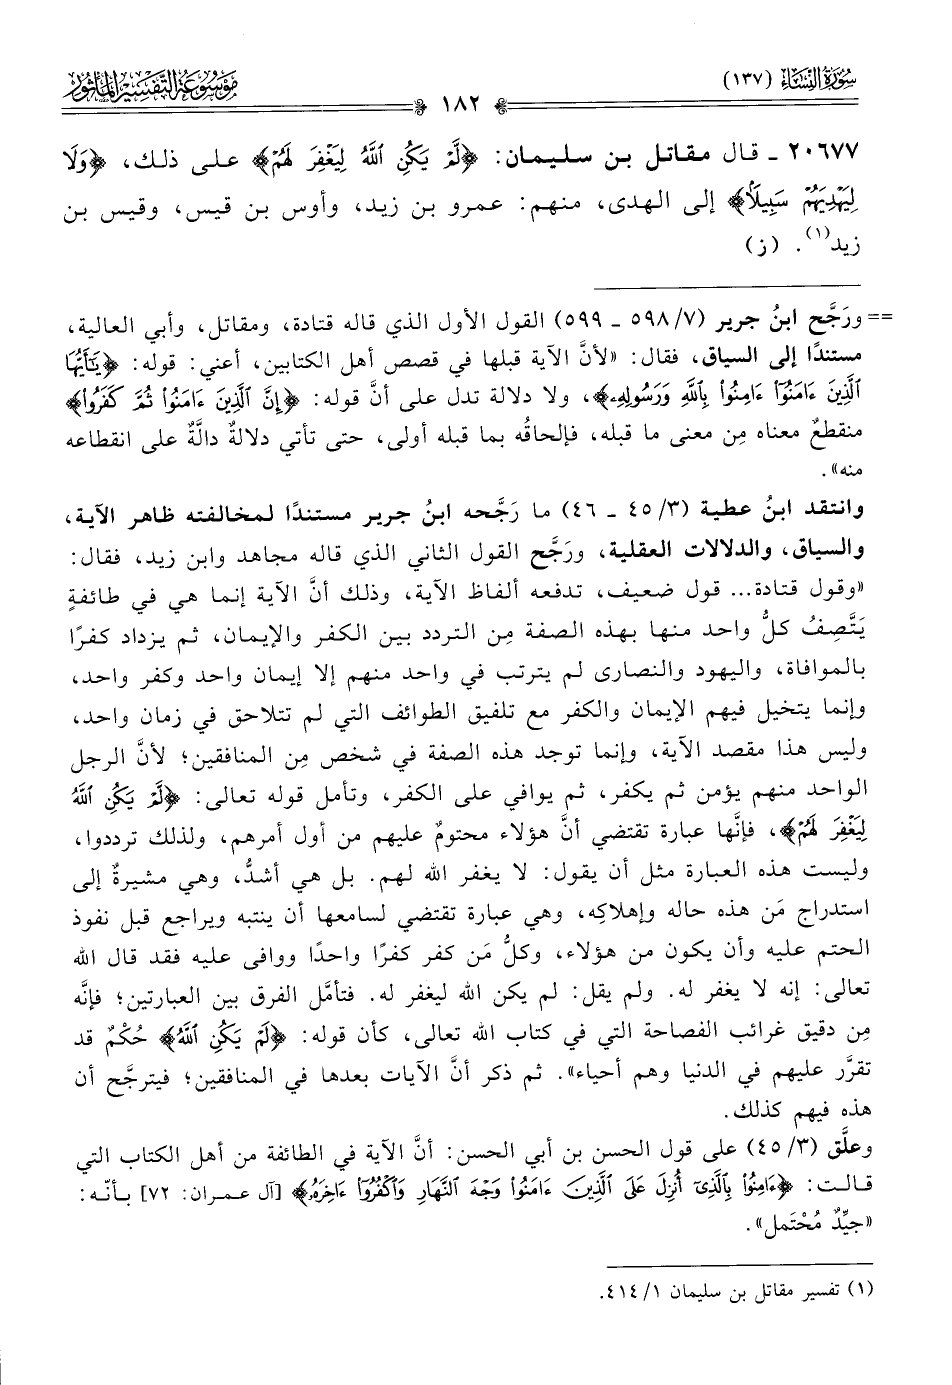 سُورَةُ النِّسَاءِ (١٣٧)
١٨٢
مَوْسُوعَةُ التَّفْسِيرِ الْمَأْثُورِ
٢٠٦٧٧ ـ قال مقاتل بن سليمان: ﴿لَّمْ يَكُنِ ٱللَّهُ لِيَغْفِرَ لَهُمْ﴾ على ذلك، ﴿وَلَا
لِيَهْدِيَهُمْ سَبِيلًا﴾ إلى الهدى، منهم: عمرو بن زيد، وأوس بن قيس، وقيس بن
زيد(١). (ز)
== ورَجَّح ابنُ جرير (٧/ ٥٩٨ ـ ٥٩٩) القول الأول الذي قاله قتادة، ومقاتل، وأبي العالية،
مستندًا إلى السياق، فقال: «لأنَّ الآية قبلها في قصص أهل الكتابين، أعني: قوله: ﴿يَـٰٓأَيُّهَا
ٱلَّذِينَ ءَامَنُوٓا۟ ءَامِنُوا۟ بِٱللَّهِ وَرَسُولِهِۦ﴾، ولا دلالة تدل على أنَّ قوله: ﴿إِنَّ ٱلَّذِينَ ءَامَنُوا۟ ثُمَّ كَفَرُوا۟﴾
منقطعٌ معناه مِن معنى ما قبله، فإلحاقُه بما قبله أولى، حتى تأتي دلالةٌ دالَّةٌ على انقطاعه
منه».
وانتقد ابنُ عطية (٣/ ٤٥ ـ ٤٦) ما رَجَّحه ابنُ جرير مستندًا لمخالفته ظاهر الآية،
والسياق، والدلالات العقلية، ورَجَّح القول الثاني الذي قاله مجاهد وابن زيد، فقال:
«وقول قتادة... قول ضعيف، تدفعه ألفاظ الآية، وذلك أنَّ الآية إنما هي في طائفةٍ
يَتَّصِفُ كلُّ واحد منها بهذه الصفة مِن التردد بين الكفر والإيمان، ثم يزداد كفرًا
بالموافاة، واليهود والنصارى لم يترتب في واحد منهم إلا إيمان واحد وكفر واحد،
وإنما يتخيل فيهم الإيمان والكفر مع تلفيق الطوائف التي لم تتلاحق في زمان واحد،
وليس هذا مقصد الآية، وإنما توجد هذه الصفة في شخص مِن المنافقين؛ لأنَّ الرجل
الواحد منهم يؤمن ثم يكفر، ثم يوافي على الكفر، وتأمل قوله تعالى: ﴿لَّمْ يَكُنِ ٱللَّهُ
لِيَغْفِرَ لَهُمْ﴾، فإنَّها عبارة تقتضي أنَّ هؤلاء محتومٌ عليهم من أول أمرهم، ولذلك ترددوا،
وليست هذه العبارة مثل أن يقول: لا يغفر الله لهم. بل هي أشدُّ، وهي مشيرةٌ إلى
استدراج مَن هذه حاله وإهلاكِه، وهي عبارة تقتضي لسامعها أن ينتبه ويراجع قبل نفوذ
الحتم عليه وأن يكون من هؤلاء، وكلُّ مَن كفر كفرًا واحدًا ووافى عليه فقد قال الله
تعالى: إنه لا يغفر له. ولم يقل: لم يكن الله ليغفر له. فتأمَّل الفرق بين العبارتين؛ فإنَّه
مِن دقيق غرائب الفصاحة التي في كتاب الله تعالى، كأن قوله: ﴿لَمْ يَكُنِ ٱللَّهُ﴾ حُكْمٌ قد
تقرَّر عليهم في الدنيا وهم أحياء». ثم ذكر أنَّ الآيات بعدها في المنافقين؛ فيترجَّح أن
هذه فيهم كذلك.
وعلَّق (٣/ ٤٥) على قول الحسن بن أبي الحسن: أنَّ الآية في الطائفة من أهل الكتاب التي
قالت: ﴿ءَامِنُوا۟ بِٱلَّذِىٓ أُنزِلَ عَلَى ٱلَّذِينَ ءَامَنُوا۟ وَجْهَ ٱلنَّهَارِ وَٱكْفُرُوٓا۟ ءَاخِرَهُۥ﴾ [آل عمران: ٧٢] بأنّه:
«جيِّدٌ مُحْتَمل».
(١) تفسير مقاتل بن سليمان ١/ ٤١٤.